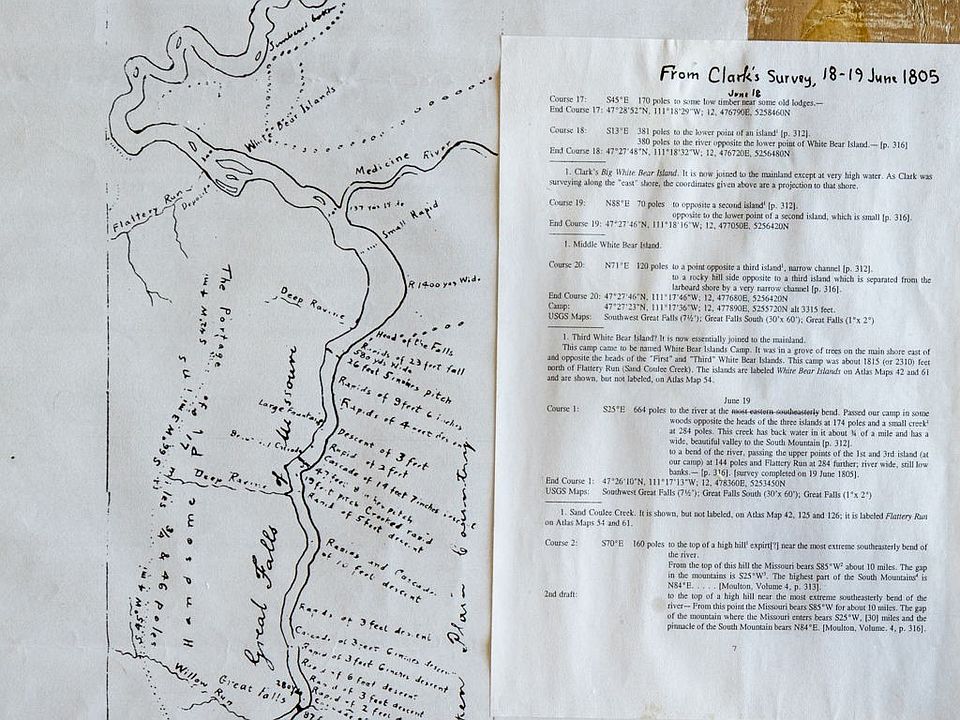 White Bear Islands
Medicine River
137 yds
Small Rapid
Flattery Run
R 1400 yds Wide
Deep Ravine
Head of the Falls
Rapids of 23 feet fall
580 yds Wide
26 feet 5 inches pitch
Rapids of 9 feet 6 inches
Large Fountain
Descent of 3 feet
Rapid of 2 feet
Cascade of 14 feet 7 inches
Rapid of 5 feet descent
Deep Ravine
Rapids and Cascades
of 10 feet descent
Rapids of 3 feet descent
Rapid of 3 feet 6 inches descent
Rapid of 6 feet descent
Rapid of 3 feet descent
Rapid of 2 feet
Great Falls of Missouri
Willow Run
Great Falls
Plain Country
The Portage of
From Clark's Survey, 18-19 June 1805
June 18
Course 17: S45°E 170 poles to some low timber near some old lodges.—
End Course 17: 47°28'52"N, 111°18'29"W; 12, 476790E, 5258460N
Course 18: S13°E 381 poles to the lower point of an island¹ [p. 312].
380 poles to the river opposite the lower point of White Bear Island.— [p. 316]
End Course 18: 47°27'48"N, 111°18'32"W; 12, 476720E, 5256480N
1. Clark's Big White Bear Island. It is now joined to the mainland except at very high water. As Clark was
surveying along the "east" shore, the coordinates given above are a projection to that shore.
Course 19: N88°E 70 poles to opposite a second island¹ [p. 312].
opposite to the lower point of a second island, which is small [p. 316].
End Course 19: 47°27'46"N, 111°18'16"W; 12, 477050E, 5256420N
1. Middle White Bear Island.
Course 20: N71°E 120 poles to a point opposite a third island¹, narrow channel [p. 312].
to a rocky hill side opposite to a third island which is separated from the
larboard shore by a very narrow channel [p. 316].
End Course 20: 47°27'46"N, 111°17'46"W; 12, 477680E, 5256420N
Camp: 47°27'23"N, 111°17'36"W; 12, 477890E, 5255720N alt 3315 feet.
USGS Maps: Southwest Great Falls (7½'); Great Falls South (30'x 60'); Great Falls (1°x 2°)
1. Third White Bear Island? It is now essentially joined to the mainland.
This camp came to be named White Bear Islands Camp. It was in a grove of trees on the main shore east of
and opposite the heads of the "First" and "Third" White Bear Islands. This camp was about 1815 (or 2310) feet
north of Flattery Run (Sand Coulee Creek). The islands are labeled White Bear Islands on Atlas Maps 42 and 61
and are shown, but not labeled, on Atlas Map 54.
June 19
Course 1: S25°E 664 poles to the river at the most eastern southeasterly bend. Passed our camp in some
woods opposite the heads of the three islands at 174 poles and a small creek¹
at 284 poles. This creek has back water in it about ¾ of a mile and has a
wide, beautiful valley to the South Mountain [p. 312].
to a bend of the river, passing the upper points of the 1st and 3rd island (at
our camp) at 144 poles and Flattery Run at 284 further; river wide, still low
banks.— [p. 316]. [survey completed on 19 June 1805].
End Course 1: 47°26'10"N, 111°17'13"W; 12, 478360E, 5253450N
USGS Maps: Southwest Great Falls (7½'); Great Falls South (30'x 60'); Great Falls (1°x 2°)
1. Sand Coulee Creek. It is shown, but not labeled, on Atlas Map 42, 125 and 126; it is labeled Flattery Run
on Atlas Maps 54 and 61.
Course 2: S70°E 160 poles to the top of a high hill¹ expirt[?] near the most extreme southeasterly bend of
the river.
From the top of this hill the Missouri bears S85°W² about 10 miles. The gap
in the mountains is S25°W³. The highest part of the South Mountains⁴ is
N84°E. . . . . [Moulton, Volume 4, p. 313].
2nd draft: to the top of a high hill near the most extreme southeasterly bend of the
river— From this point the Missouri bears S85°W for about 10 miles. The gap
of the mountain where the Missouri enters bears S25°W, [30] miles and the
pinnacle of the South Mountain bears N84°E. [Moulton, Volume. 4, p. 316].
7